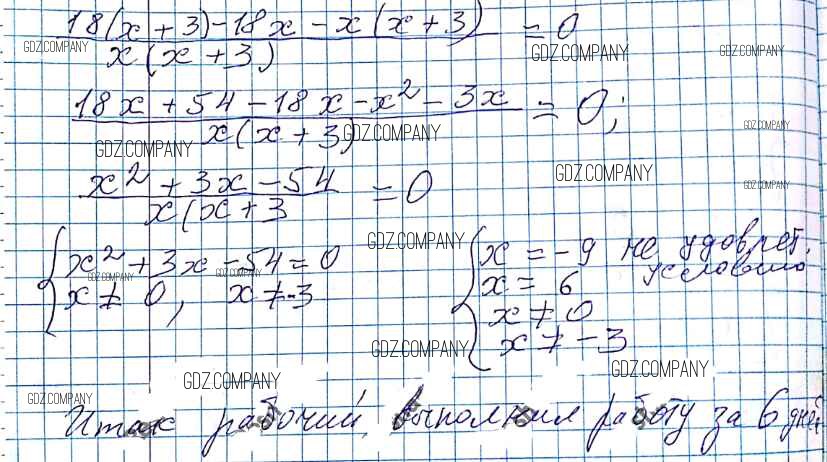 18(x + 3) - 18x - x(x + 3) / x(x + 3) = 0
GDZ.COMPANY GDZ.COMPANY GDZ.COMPANY
18x + 54 - 18x - x² - 3x / x(x + 3) = 0;
GDZ.COMPANY GDZ.COMPANY GDZ.COMPANY
x² + 3x - 54 / x(x + 3 = 0
GDZ.COMPANY GDZ.COMPANY
{ x² + 3x - 54 = 0
x ≠ 0, x ≠ -3
GDZ.COMPANY GDZ.COMPANY GDZ.COMPANY
{ x = -9 не удовлет. условию
x = 6
x ≠ 0
x ≠ -3
GDZ.COMPANY GDZ.COMPANY
GDZ.COMPANY GDZ.COMPANY
Итак рабочий, выполнил работу за 6 дней